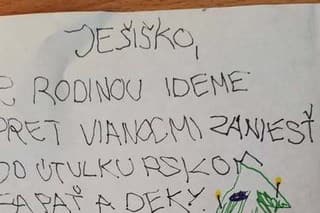 JEŠIŠKO,
RODINOU IDEME
PRET VIANOCMI ZANIESŤ
DO ÚTULKU PSKOM
A DEKY